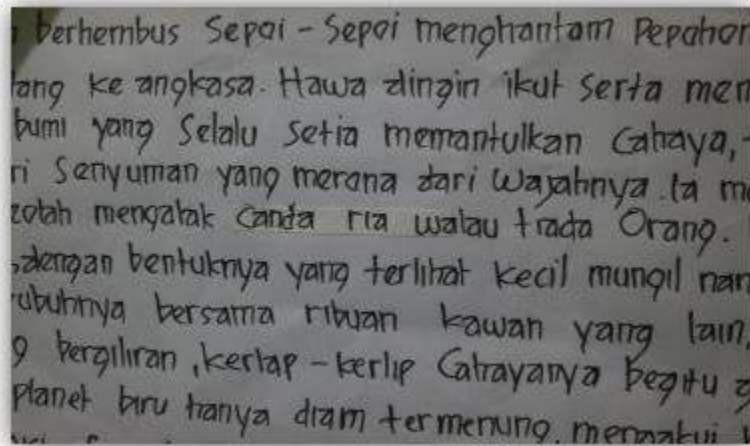 berhembus Sepoi - Sepoi menghantam Pepohon
lang ke angkasa. Hawa dingin ikut serta men
bumi yang Selalu setia memantulkan Cahaya,
ri Senyuman yang merona dari Wajahnya. Ia me
zolah mengajak Canda ria walau trada Orang.
dengan bentuknya yang terlihat kecil mungil nan
ubuhnya bersama ribuan kawan yang lain,
g bergiliran, kerlap - kerlip Cahayanya begitu
planet biru hanya diam termenung, mengakui